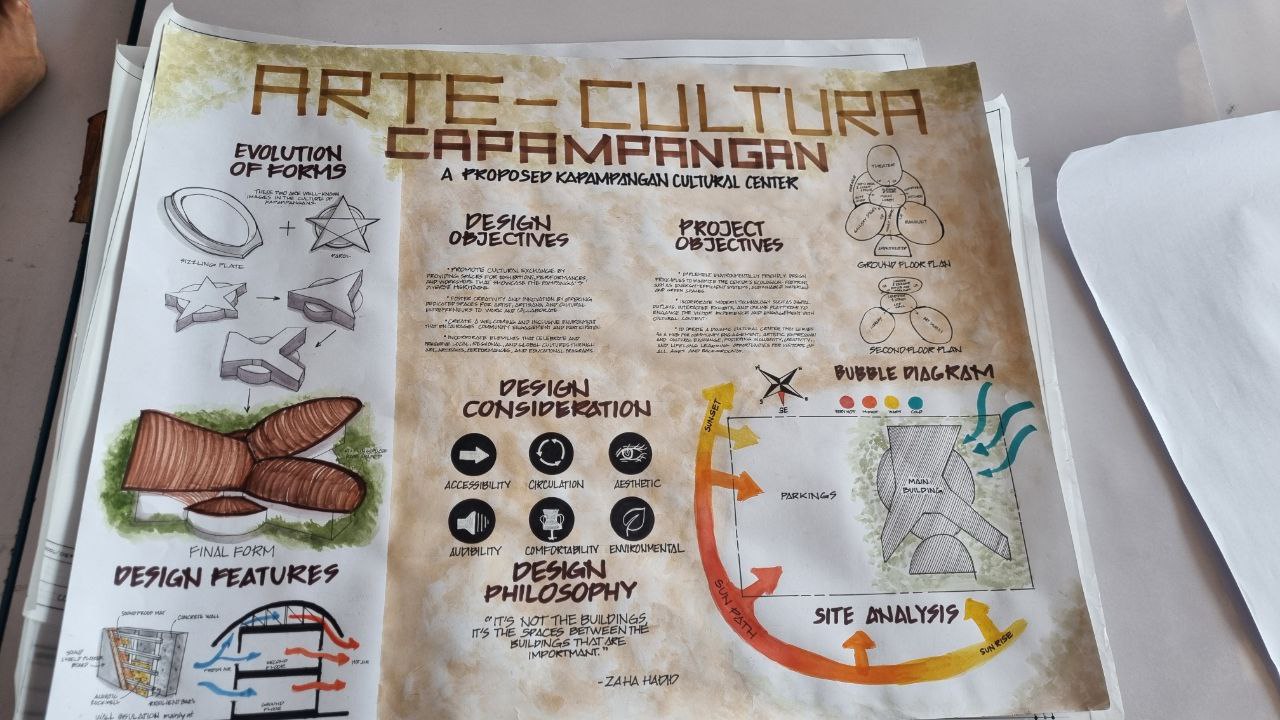 ARTE-CULTURA
CAPAMPANGAN
A PROPOSED KAPAMPANGAN CULTURAL CENTER
EVOLUTION
OF FORMS
THESE TWO ARE WELL-KNOWN
IMAGES IN THE CULTURE OF
KAPAMPANGANS.
+
SIZZLING PLATE
PAROL
FINAL FORM
DESIGN FEATURES
SOUNDPROOF MAT
CONCRETE WALL
SOUND
BOARD
RESILIENT BARS
WALL INSULATION mainly of
FRESH AIR
HOT AIR
SECOND
FLOOR
GROUND
FLOOR
DESIGN
OBJECTIVES
* PROMOTE CULTURAL EXCHANGE BY
PROVIDING SPACES FOR EXHIBITIONS, PERFORMANCES,
AND WORKSHOPS THAT SHOWCASE THE KAPAMPANGAN'S
* FOSTER CREATIVITY AND INNOVATION BY OFFERING
DEDICATED SPACES FOR ARTIST, ARTISANS, AND CULTURAL
ENTREPRENEURS TO WORK AND COLLABORATE.
* CREATE A WELCOMING AND INCLUSIVE ENVIRONMENT
THAT ENCOURAGES COMMUNITY ENGAGEMENT AND PARTICIPATION.
* INCORPORATE ELEMENTS THAT CELEBRATE AND
PRESERVE LOCAL, REGIONAL, AND GLOBAL CULTURES THROUGH
ART, PERFORMANCES, AND EDUCATIONAL PROGRAMS.
PROJECT
OBJECTIVES
* IMPLEMENT ENVIRONMENTALLY FRIENDLY DESIGN
PRINCIPLES TO MINIMIZE THE CENTER'S ECOLOGICAL FOOTPRINT,
SUCH AS ENERGY-EFFICIENT SYSTEMS, SUSTAINABLE MATERIALS
AND GREEN SPACES.
* INCORPORATE MODERN TECHNOLOGY SUCH AS DIGITAL
OUTLETS, INTERACTIVE EXHIBITS, AND ONLINE PLATFORMS TO
ENHANCE THE VISITOR EXPERIENCE AND ENGAGEMENT WITH
CULTURAL CONTENT.
* TO CREATE A DYNAMIC CULTURAL CENTER THAT SERVES
AS A HUB FOR COMMUNITY ENGAGEMENT, ARTISTIC EXPRESSION
AND CULTURAL EXCHANGE, FOSTERING INCLUSIVITY, CREATIVITY,
AND LIFELONG LEARNING OPPORTUNITIES FOR VISITORS OF
ALL AGES AND BACKGROUNDS.
THEATER
BANQUET
GROUND FLOOR PLAN
SECOND FLOOR PLAN
BUBBLE DIAGRAM
DESIGN
CONSIDERATION
ACCESSIBILITY
CIRCULATION
AESTHETIC
AUDIBILITY
COMFORTABILITY
ENVIRONMENTAL
DESIGN
PHILOSOPHY
"IT'S NOT THE BUILDINGS,
IT'S THE SPACES BETWEEN THE
BUILDINGS THAT ARE
IMPORTMANT."
- ZAHA HADID
SE
VERY HOT
WARM
COLD
SUNSET
PARKINGS
MAIN
BUILDING
SUN PATH
SITE ANALYSIS
SUNRISE